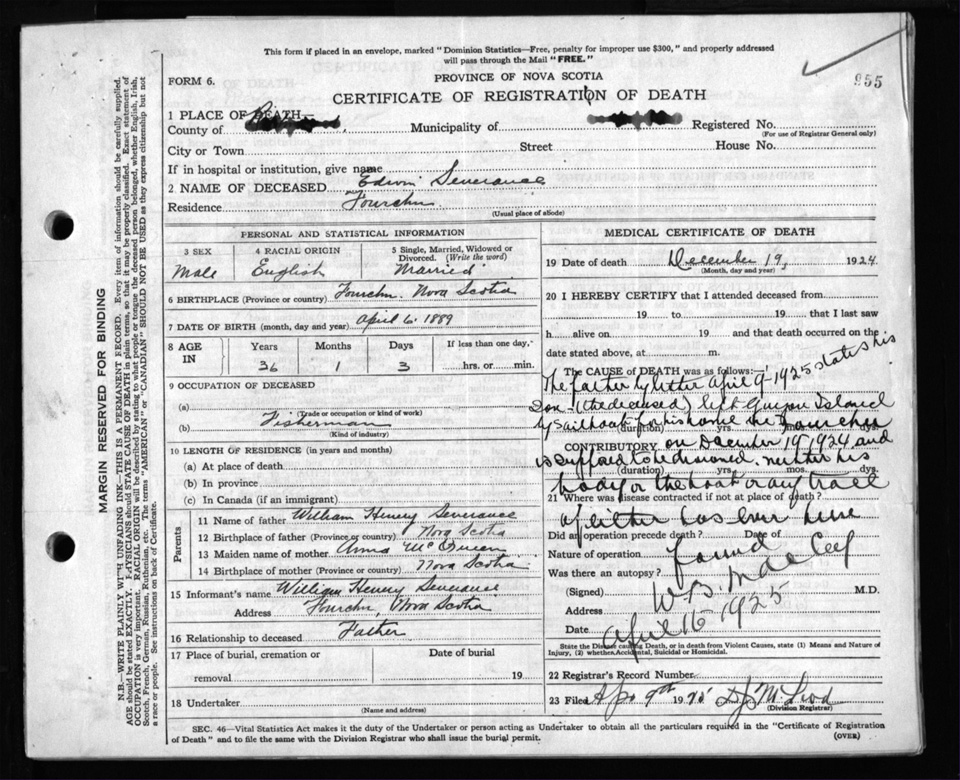 This form if placed in an envelope, marked "Dominion Statistics—Free, penalty for improper use $300," and properly addressed
will pass through the Mail "FREE."
FORM 6.
PROVINCE OF NOVA SCOTIA
955
CERTIFICATE OF REGISTRATION OF DEATH
1 PLACE OF DEATH—
County of
Municipality of
Registered No.
(For use of Registrar General only)
City or Town
Street
House No.
If in hospital or institution, give name
2 NAME OF DECEASED Edwin Severance
Residence Fourchu
(Usual place of abode)
PERSONAL AND STATISTICAL INFORMATION
3 SEX
4 RACIAL ORIGIN
5 Single, Married, Widowed or
Divorced. (Write the word)
Male
English
Married
6 BIRTHPLACE (Province or country) Fourchu. Nova Scotia
7 DATE OF BIRTH (month, day and year) April 6. 1889
8 AGE
IN
Years
Months
Days
If less than one day,
36
1
3
hrs. or min.
9 OCCUPATION OF DECEASED
(a)
(Trade or occupation or kind of work)
(b) Fisherman
(Kind of industry)
10 LENGTH OF RESIDENCE (in years and months)
(a) At place of death
(b) In province
(c) In Canada (if an immigrant)
Parents
11 Name of father William Henry Severance
12 Birthplace of father (Province or country) Nova Scotia
13 Maiden name of mother Anna McQueen
14 Birthplace of mother (Province or country) Nova Scotia
15 Informant's name William Henry Severance
Address Fourchu, Nova Scotia
16 Relationship to deceased Father
17 Place of burial, cremation or
removal
Date of burial
19
18 Undertaker
(Name and address)
MEDICAL CERTIFICATE OF DEATH
19 Date of death December 19, 1924
(Month, day and year)
20 I HEREBY CERTIFY that I attended deceased from
19 to 19 that I last saw
h alive on 19 and that death occurred on the
date stated above, at m.
The CAUSE OF DEATH was as follows:—
The father by letter April 9-1925 states his
son-(the deceased) left Guyon Island
by sailboat for his home the Fourchu
(duration) yrs. mos. dys.
CONTRIBUTORY
on December 19 1924 and
is supposed to be drowned. neither his
(duration) yrs. mos. dys.
body or the boat or any trace
21 Where was disease contracted if not at place of death?
of either has ever been
Did an operation precede death? Date of
found
Nature of operation
Was there an autopsy?
(Signed) M.D.
Address
Date April 16 1925
State the Disease causing Death, or in death from Violent Causes, state (1) Means and Nature of
Injury, (2) whether Accidental, Suicidal or Homicidal.
22 Registrar's Record Number
23 Filed Apr 9th 1925 D J McLeod
(Division Registrar)
SEC. 46—Vital Statistics Act makes it the duty of the Undertaker or person acting as Undertaker to obtain all the particulars required in the "Certificate of Registration
of Death" and to file the same with the Division Registrar who shall issue the burial permit.
(OVER)
MARGIN RESERVED FOR BINDING
N.B.—WRITE PLAINLY WITH UNFADING INK—THIS IS A PERMANENT RECORD. Every item of information should be carefully supplied.
AGE should be stated EXACTLY. PHYSICIANS should STATE CAUSE OF DEATH in plain terms, so that it may be properly classified. Exact statement of
OCCUPATION is very important. RACIAL ORIGIN will be described by stating to what people or tongue the deceased person belonged, whether English, Irish,
Scotch, French, German, Russian, Ruthenian, etc. The terms "AMERICAN" or "CANADIAN" SHOULD NOT BE USED as they express citizenship but not
a race or people. See instructions on back of Certificate.